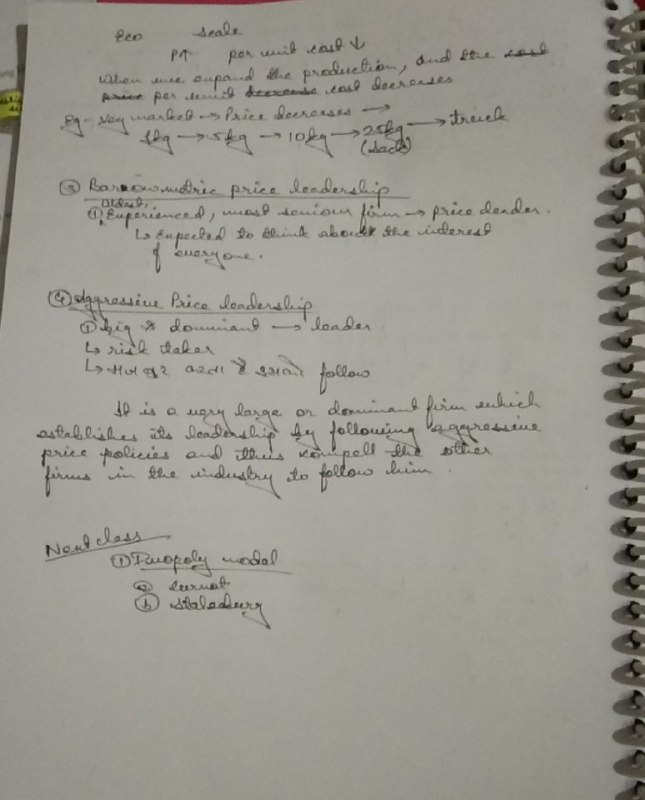 Eco scale
P↑ per unit cost ↓
When we expand the production, and the cost
price per unit decrease cost decreases
Eg - veg market → Price decreases →
1kg → 5kg → 10kg → 25kg → truck
(Sack)
③ Barnonometric price leadership
oldest,
① Experienced, most seniour firm → price leader.
↳ Expected to think about the interest
of everyone.
④ Aggressive Price leadership
① big & dominant → leader
↳ risk taker
↳ मजबूर करता है इसको follow
It is a very large or dominant firm which
establishes its leadership by following aggressive
price policies and thus compell the other
firms in the industry to follow him.
Next class
① Duopoly model
ⓐ curnot
ⓑ stalckurg